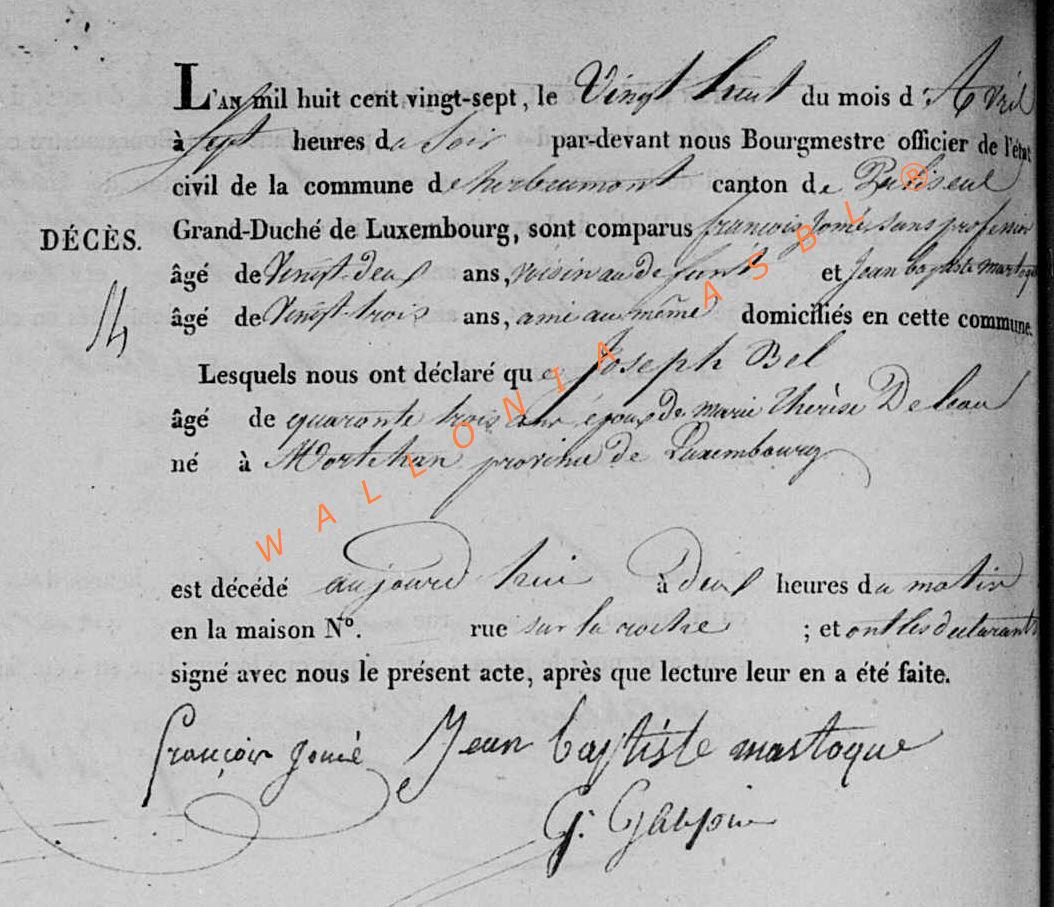 L'AN mil huit cent vingt-sept, le Vingt huit du mois d'Avril
à Sept heures du Soir par-devant nous Bourgmestre officier de l'état
civil de la commune de herbeumont canton de Paliseul
DÉCÈS.
Grand-Duché de Luxembourg, sont comparus francois Jomé sans profession
âgé de Vingt-deux ans, voisin au defunt et Jean baptiste martoque
14
âgé de Vingt-trois ans, ami au même domiciliés en cette commune.
Lesquels nous ont déclaré que Joseph Bel
âgé de quarante trois ans époux de marie Thérèse Deleau
né à Mortehan province de Luxembourg
est décédé aujourd hui à deux heures du matin
en la maison N°. rue sur la roche ; et ont les déclarants
signé avec nous le présent acte, après que lecture leur en a été faite.
françois Jomé Jean baptiste martoque
G: Galopin
WALLONIA ASBL ®